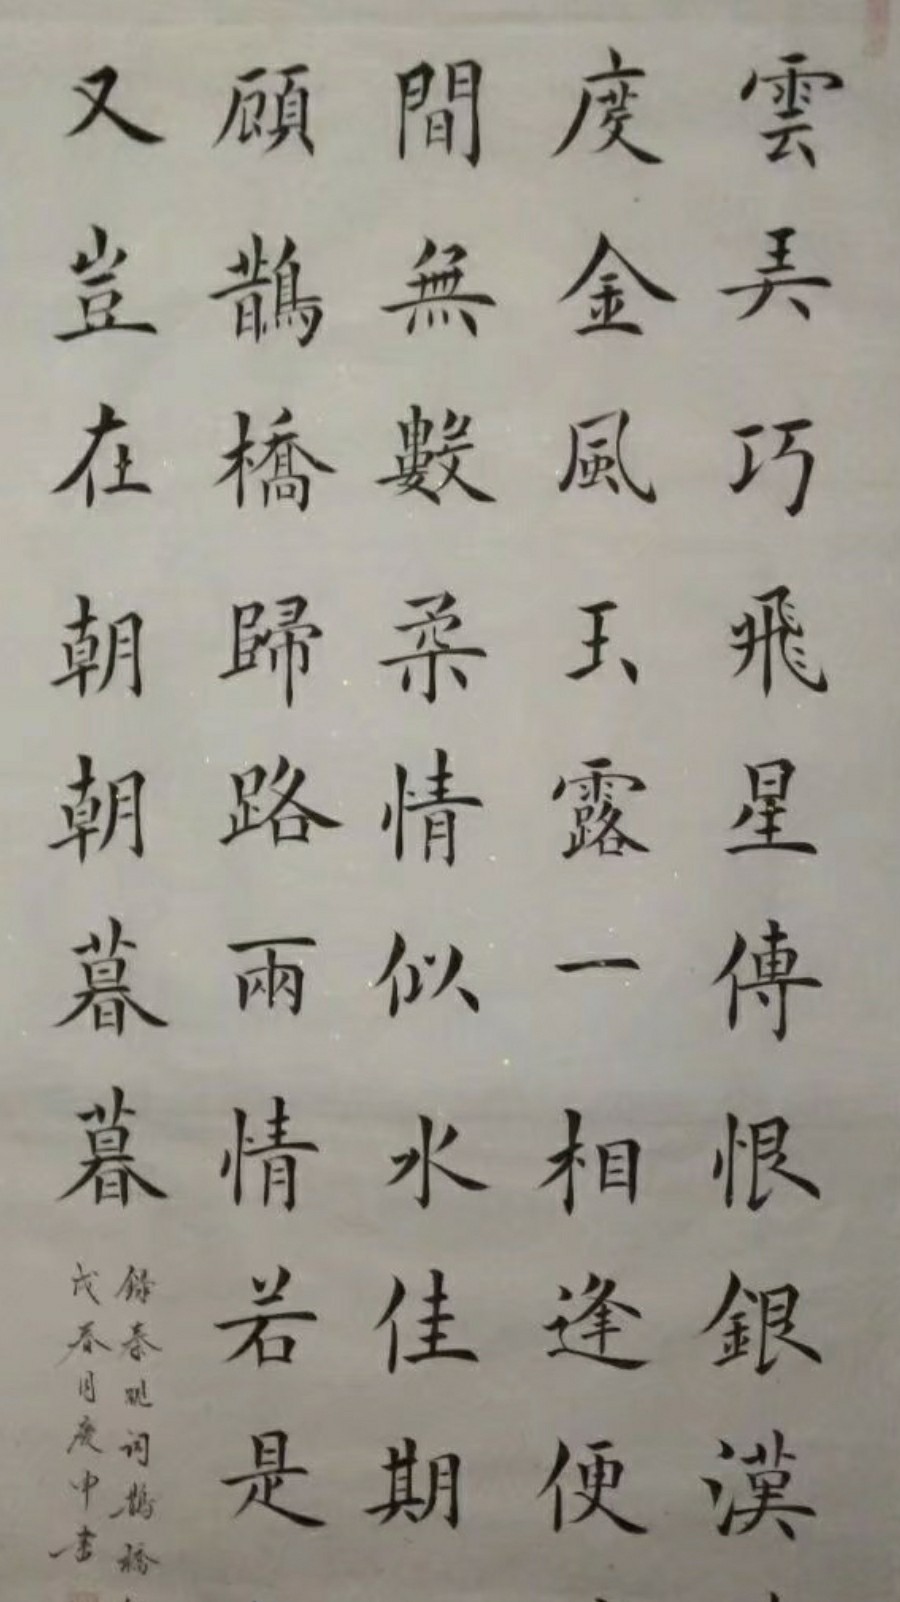 雲弄巧飛星傳恨銀漢
度金風玉露一相逢便
間無數柔情似水佳期
顧鵲橋歸路兩情若是
又豈在朝朝暮暮
錄秦觀詞鵲橋
戊春月庚中書